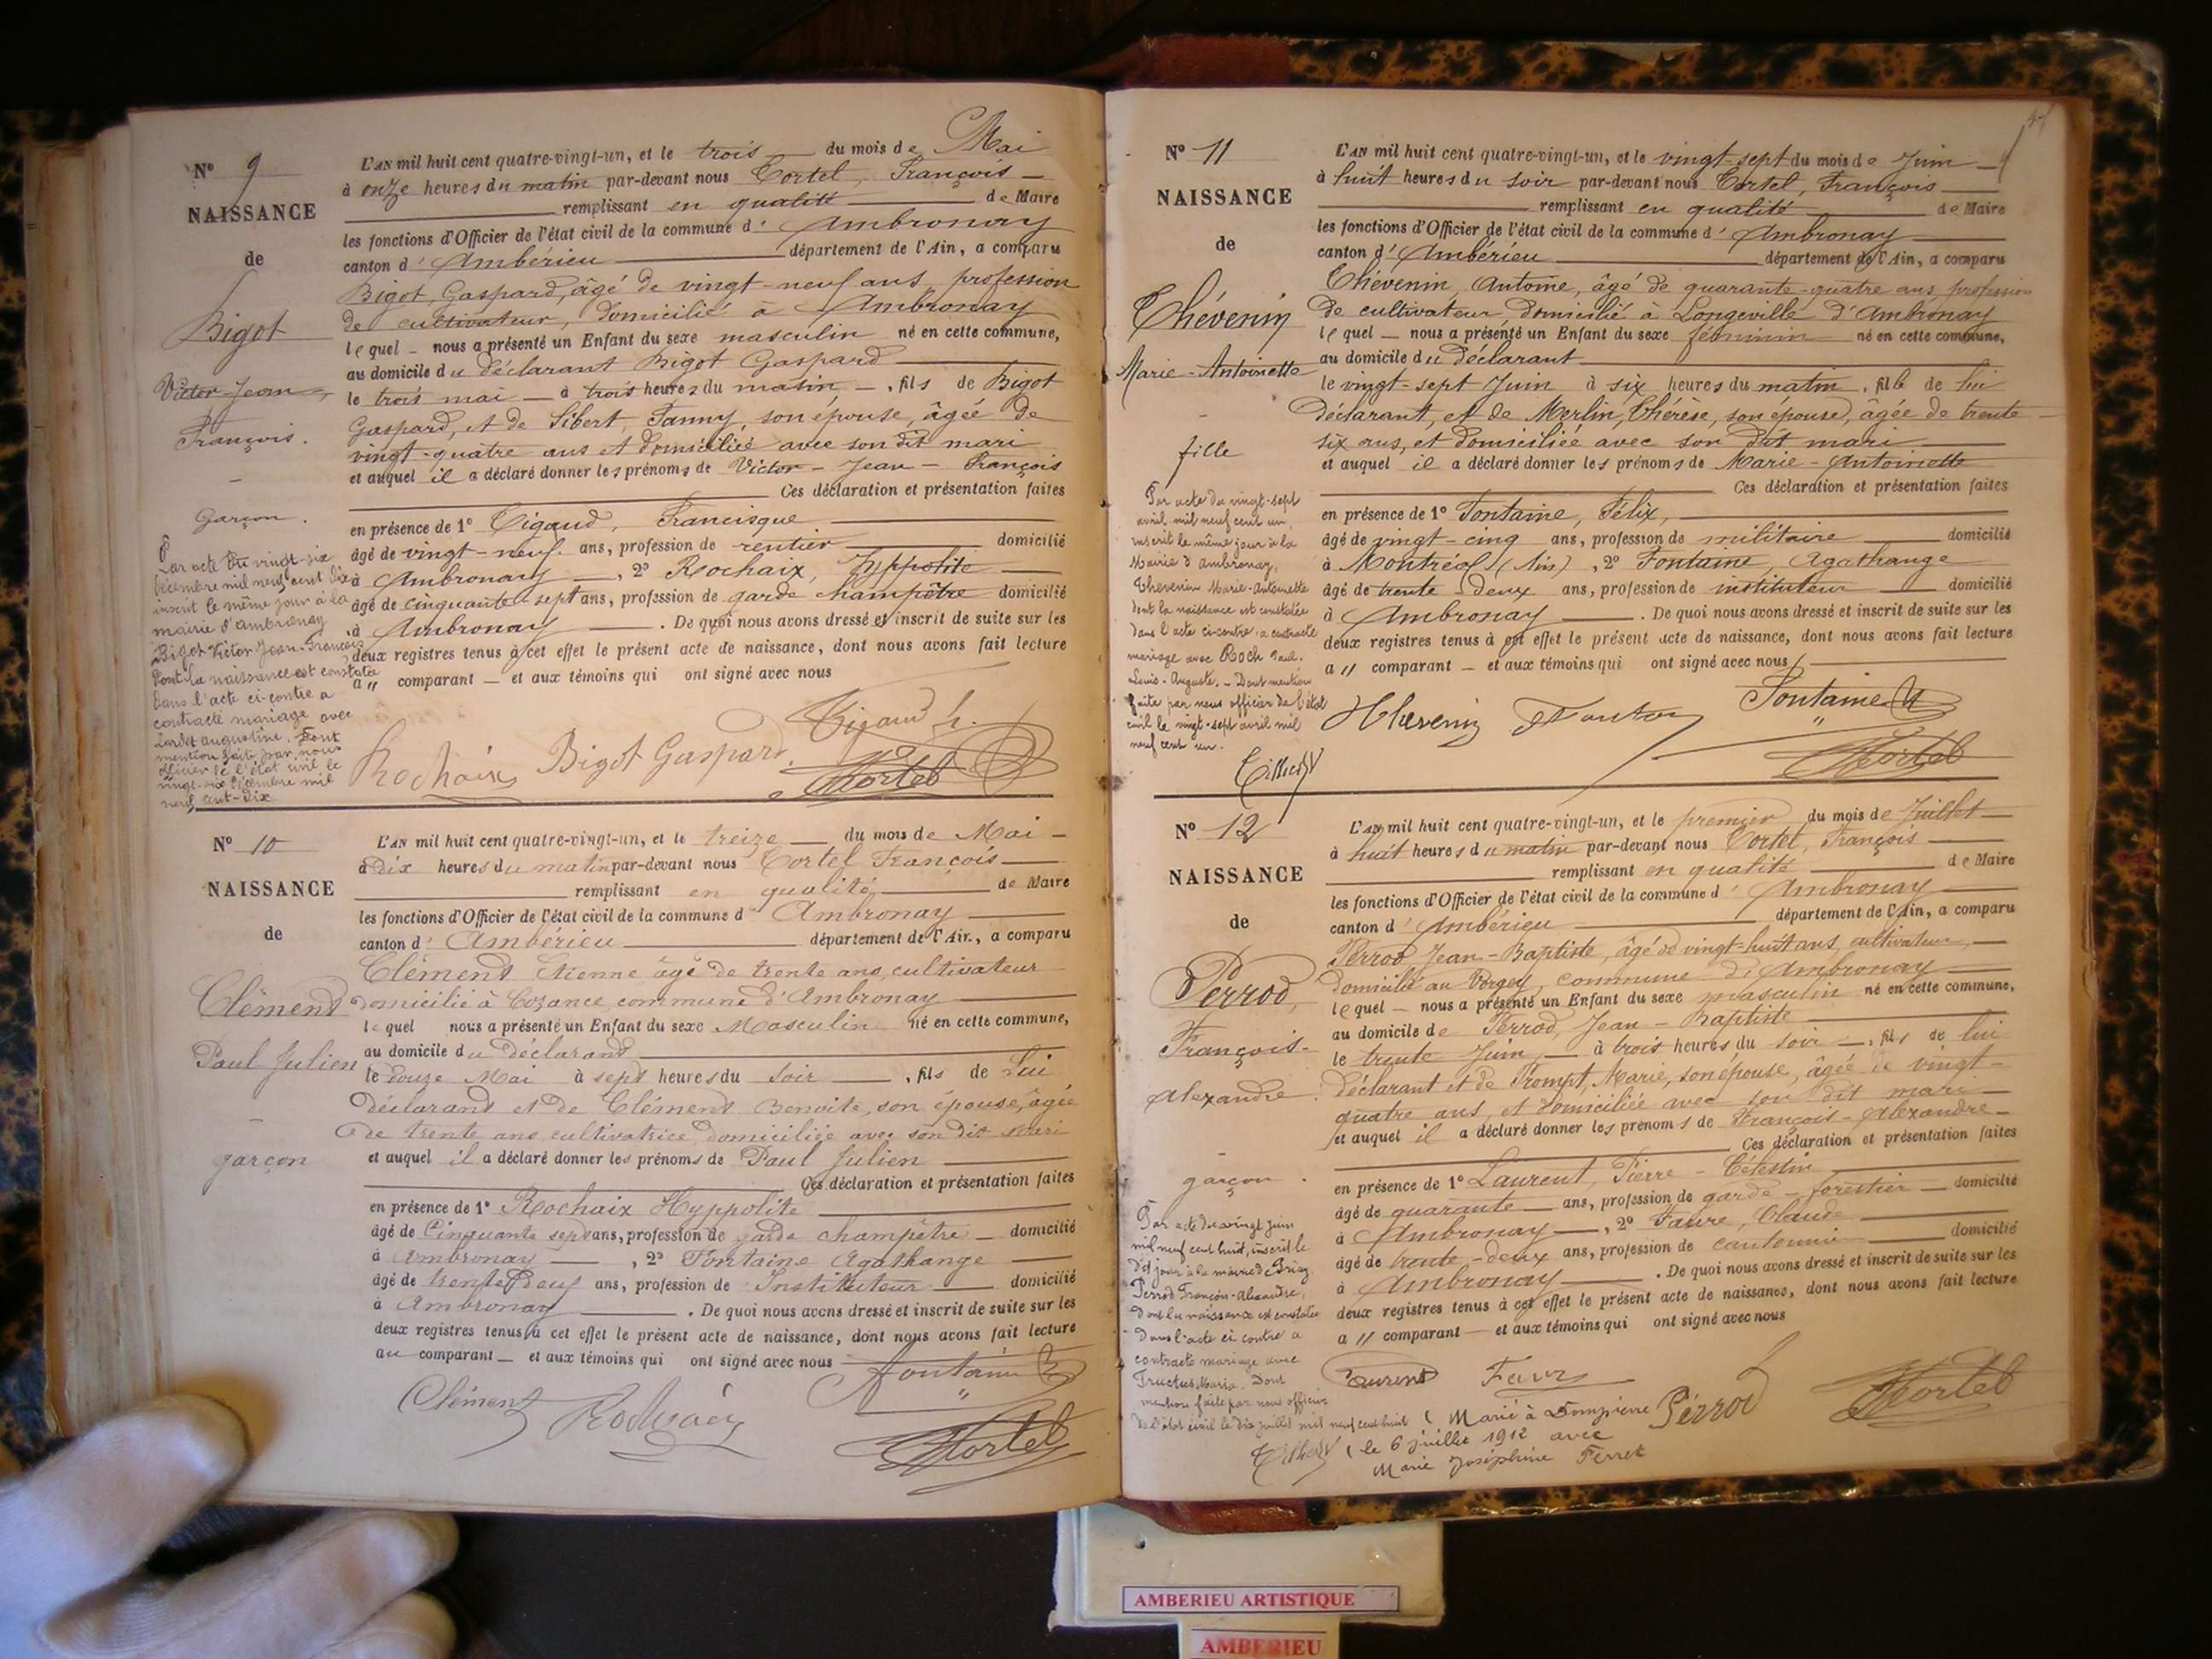 N° 9
NAISSANCE
de
Bigot
Victor-Jean-
François.
garçon.
Par acte du vingt-six
décembre mil neuf cent dix
inscrit le même jour à la
mairie d'Ambronay
Bigot Victor Jean-François
dont la naissance est constatée
dans l'acte ci-contre a
contracté mariage avec
Lardet Augustine. Dont
mention faite par nous
officier de l'état civil le
vingt-six décembre mil
neuf cent-dix
L'AN mil huit cent quatre-vingt-un, et le trois du mois de Mai
à onze heures du matin par-devant nous Tortel, François
remplissant en qualité de Maire
les fonctions d'Officier de l'état civil de la commune d' Ambronay
canton d' Ambérieu département de l'Ain, a comparu
Bigot, Gaspard, âgé de vingt-neuf ans, profession
de cultivateur, domicilié à Ambronay
lequel nous a présenté un Enfant du sexe masculin né en cette commune,
au domicile du déclarant Bigot Gaspard
le trois mai à trois heures du matin, fils de Bigot
Gaspard, et de Sibert, Fanny, son épouse, âgée de
vingt-quatre ans et domiciliée avec son dit mari
et auquel il a déclaré donner les prénoms de Victor-Jean-François
Ces déclaration et présentation faites
en présence de 1° Tigaud, Francisque
âgé de vingt-neuf ans, profession de rentier domicilié
à Ambronay, 2° Rochaix, Hyppolite
âgé de cinquante-sept ans, profession de garde champêtre domicilié
à Ambronay. De quoi nous avons dressé et inscrit de suite sur les
deux registres tenus à cet effet le présent acte de naissance, dont nous avons fait lecture
a " comparant et aux témoins qui ont signé avec nous
Rochaix Bigot Gaspard. Tigaud h.
Tortel
N° 10
NAISSANCE
de
Clément
Paul Julien
garçon
L'AN mil huit cent quatre-vingt-un, et le treize du mois de Mai
à Dix heures du matin par-devant nous Tortel François
remplissant en qualité de Maire
les fonctions d'Officier de l'état civil de la commune d' Ambronay
canton d' Ambérieu département de l'Ain, a comparu
Clément Etienne âgé de trente ans, cultivateur
domicilié à Cozance, commune d'Ambronay
lequel nous a présenté un Enfant du sexe Masculin né en cette commune,
au domicile du déclarant
le douze Mai à sept heures du soir, fils de Lui
déclarant et de Clément Benoite, son épouse, âgée
de trente ans, cultivatrice domiciliée avec son dit mari
et auquel il a déclaré donner les prénoms de Paul Julien
Ces déclaration et présentation faites
en présence de 1° Rochaix Hyppolite
âgé de Cinquante sept ans, profession de garde champêtre domicilié
à Ambronay, 2° Fontaine Agathange
âgé de trente Deux ans, profession de Instituteur domicilié
à Ambronay. De quoi nous avons dressé et inscrit de suite sur les
deux registres tenus à cet effet le présent acte de naissance, dont nous avons fait lecture
au comparant et aux témoins qui ont signé avec nous
Clément Rochaix Fontaine
Tortel
N° 11
NAISSANCE
de
Thévenin
Marie-Antoinette
fille
Par acte du vingt-sept
avril mil neuf cent un,
inscrit le même jour à la
Mairie d'Ambronay,
Thevenin Marie-Antoinette
dont la naissance est constatée
dans l'acte ci-contre, a contracté
mariage avec Roch Paul.
Louis-Auguste. - Dont mention
faite par nous officier de l'état
civil le vingt-sept avril mil
neuf cent un.
L'AN mil huit cent quatre-vingt-un, et le vingt-sept du mois de Juin
à huit heures du soir par-devant nous Tortel, François
remplissant en qualité de Maire
les fonctions d'Officier de l'état civil de la commune d' Ambronay
canton d' Ambérieu département de l'Ain, a comparu
Thévenin, Antoine, âgé de quarante-quatre ans, profession
de cultivateur, domicilié à Longeville d'Ambronay
lequel nous a présenté un Enfant du sexe féminin né en cette commune,
au domicile du déclarant
le vingt-sept Juin à six heures du matin, fille de lui
déclarant, et de Merlin, Thérèse, son épouse, âgée de trente
six ans, et domiciliée avec son dit mari
et auquel il a déclaré donner les prénoms de Marie-Antoinette
Ces déclaration et présentation faites
en présence de 1° Fontaine, Félix,
âgé de vingt-cinq ans, profession de militaire domicilié
à Montréal (Ain), 2° Fontaine, Agathange
âgé de trente-deux ans, profession de instituteur domicilié
à Ambronay. De quoi nous avons dressé et inscrit de suite sur les
deux registres tenus à cet effet le présent acte de naissance, dont nous avons fait lecture
a " comparant et aux témoins qui ont signé avec nous
Thevenin Fontaine
Tortel
N° 12
NAISSANCE
de
Perrod,
François-
Alexandre.
garçon.
Par acte du vingt juin
mil neuf cent huit, inscrit le
dit jour à la mairie de Priay
Perrod François-Alexandre,
dont la naissance est constatée
dans l'acte ci contre a
contracté mariage avec
Fructus Maria. Dont
mention faite par nous officier
de l'état civil le dix juillet mil neuf cent huit
L'AN mil huit cent quatre-vingt-un, et le premier du mois de Juillet
à huit heures du matin par-devant nous Tortel, François
remplissant en qualité de Maire
les fonctions d'Officier de l'état civil de la commune d' Ambronay
canton d' Ambérieu département de l'Ain, a comparu
Perrod Jean-Baptiste, âgé de vingt-huit ans, cultivateur,
domicilié au Vorgey, commune d'Ambronay
lequel nous a présenté un Enfant du sexe masculin né en cette commune,
au domicile de Perrod, Jean-Baptiste
le trente Juin, à trois heures du soir, fils de lui
déclarant et de Trompt, Marie, son épouse, âgée de vingt-
quatre ans, et domiciliée avec son dit mari
et auquel il a déclaré donner les prénoms de François-Alexandre
Ces déclaration et présentation faites
en présence de 1° Laurent, Pierre-Célestin
âgé de quarante ans, profession de garde-forestier domicilié
à Ambronay, 2° Favre, Claude
âgé de trente-deux ans, profession de cantonnier domicilié
à Ambronay. De quoi nous avons dressé et inscrit de suite sur les
deux registres tenus à cet effet le présent acte de naissance, dont nous avons fait lecture
a " comparant et aux témoins qui ont signé avec nous
Laurent Favre Perrod Tortel
Marié à Dompierre
le 6 juillet 1912 avec
Marie Joséphine Ferret
AMBERIEU ARTISTIQUE
AMBERIEU